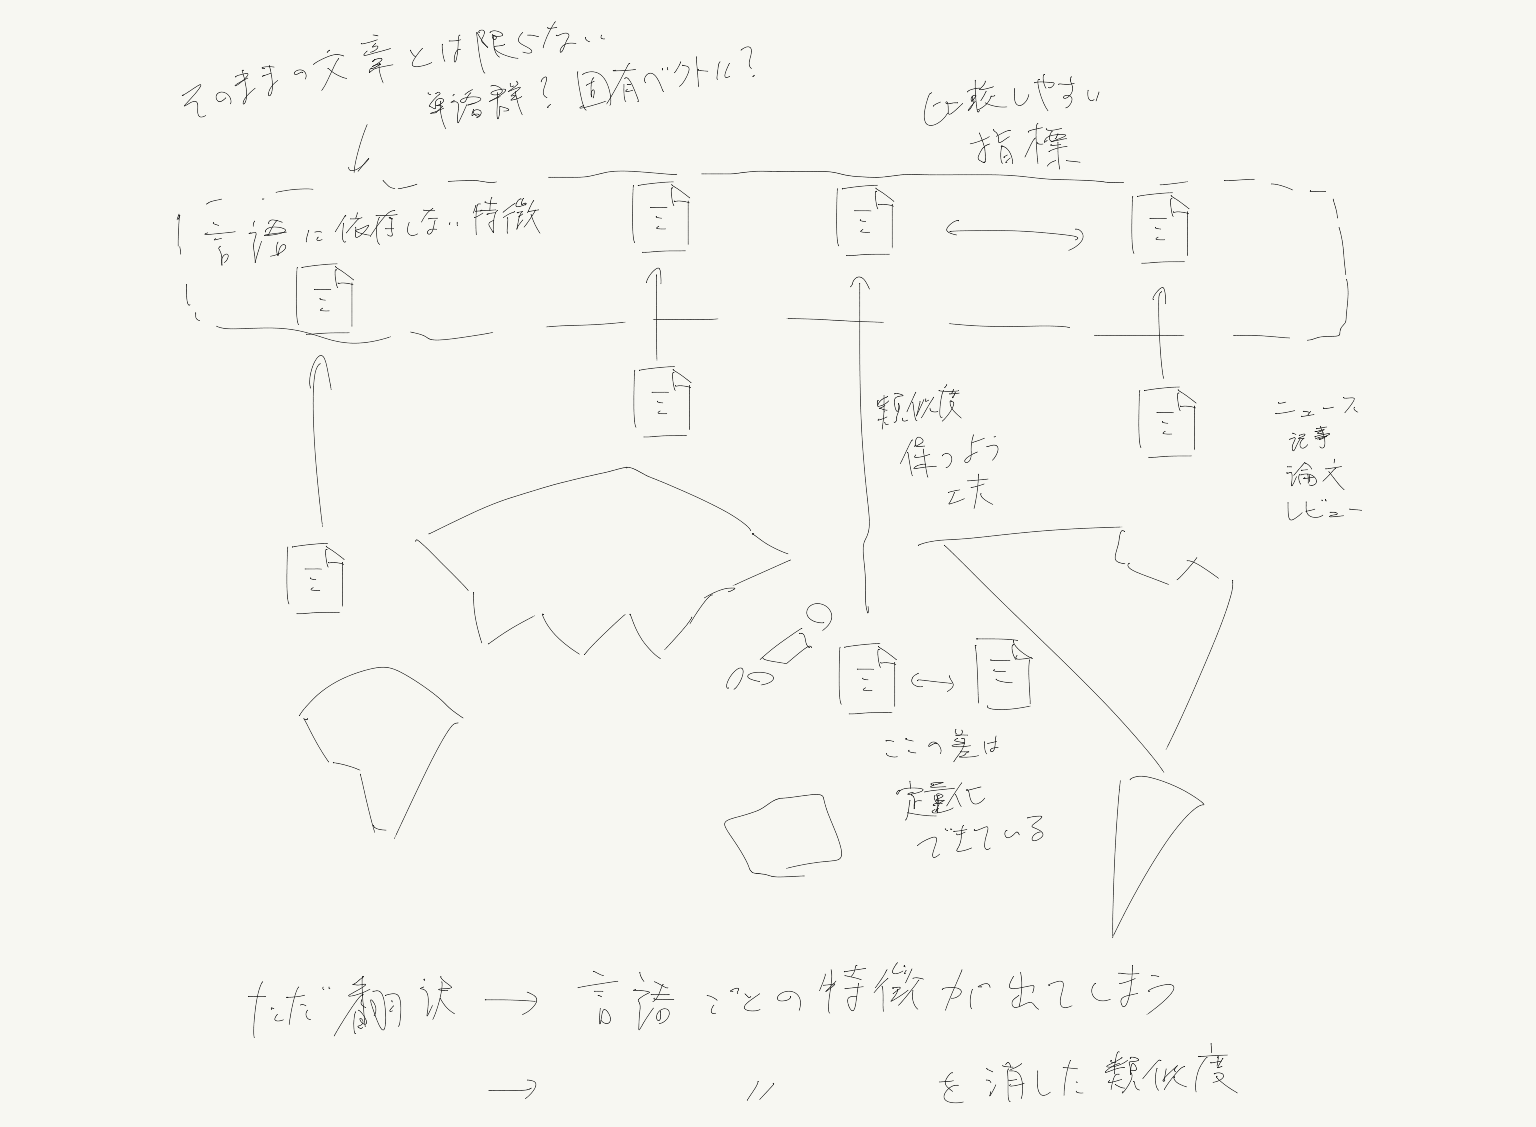 そのままの文章とは限らない
単語群？固有ベクトル？
比較しやすい
指標
言語に依存しない特徴
類似度
保つよう
工夫
ニュース
記事
論文
レビュー
ここの差は
定量化
できている
ただ翻訳 → 言語ごとの特徴が出てしまう
→ 〃 を消した類似度